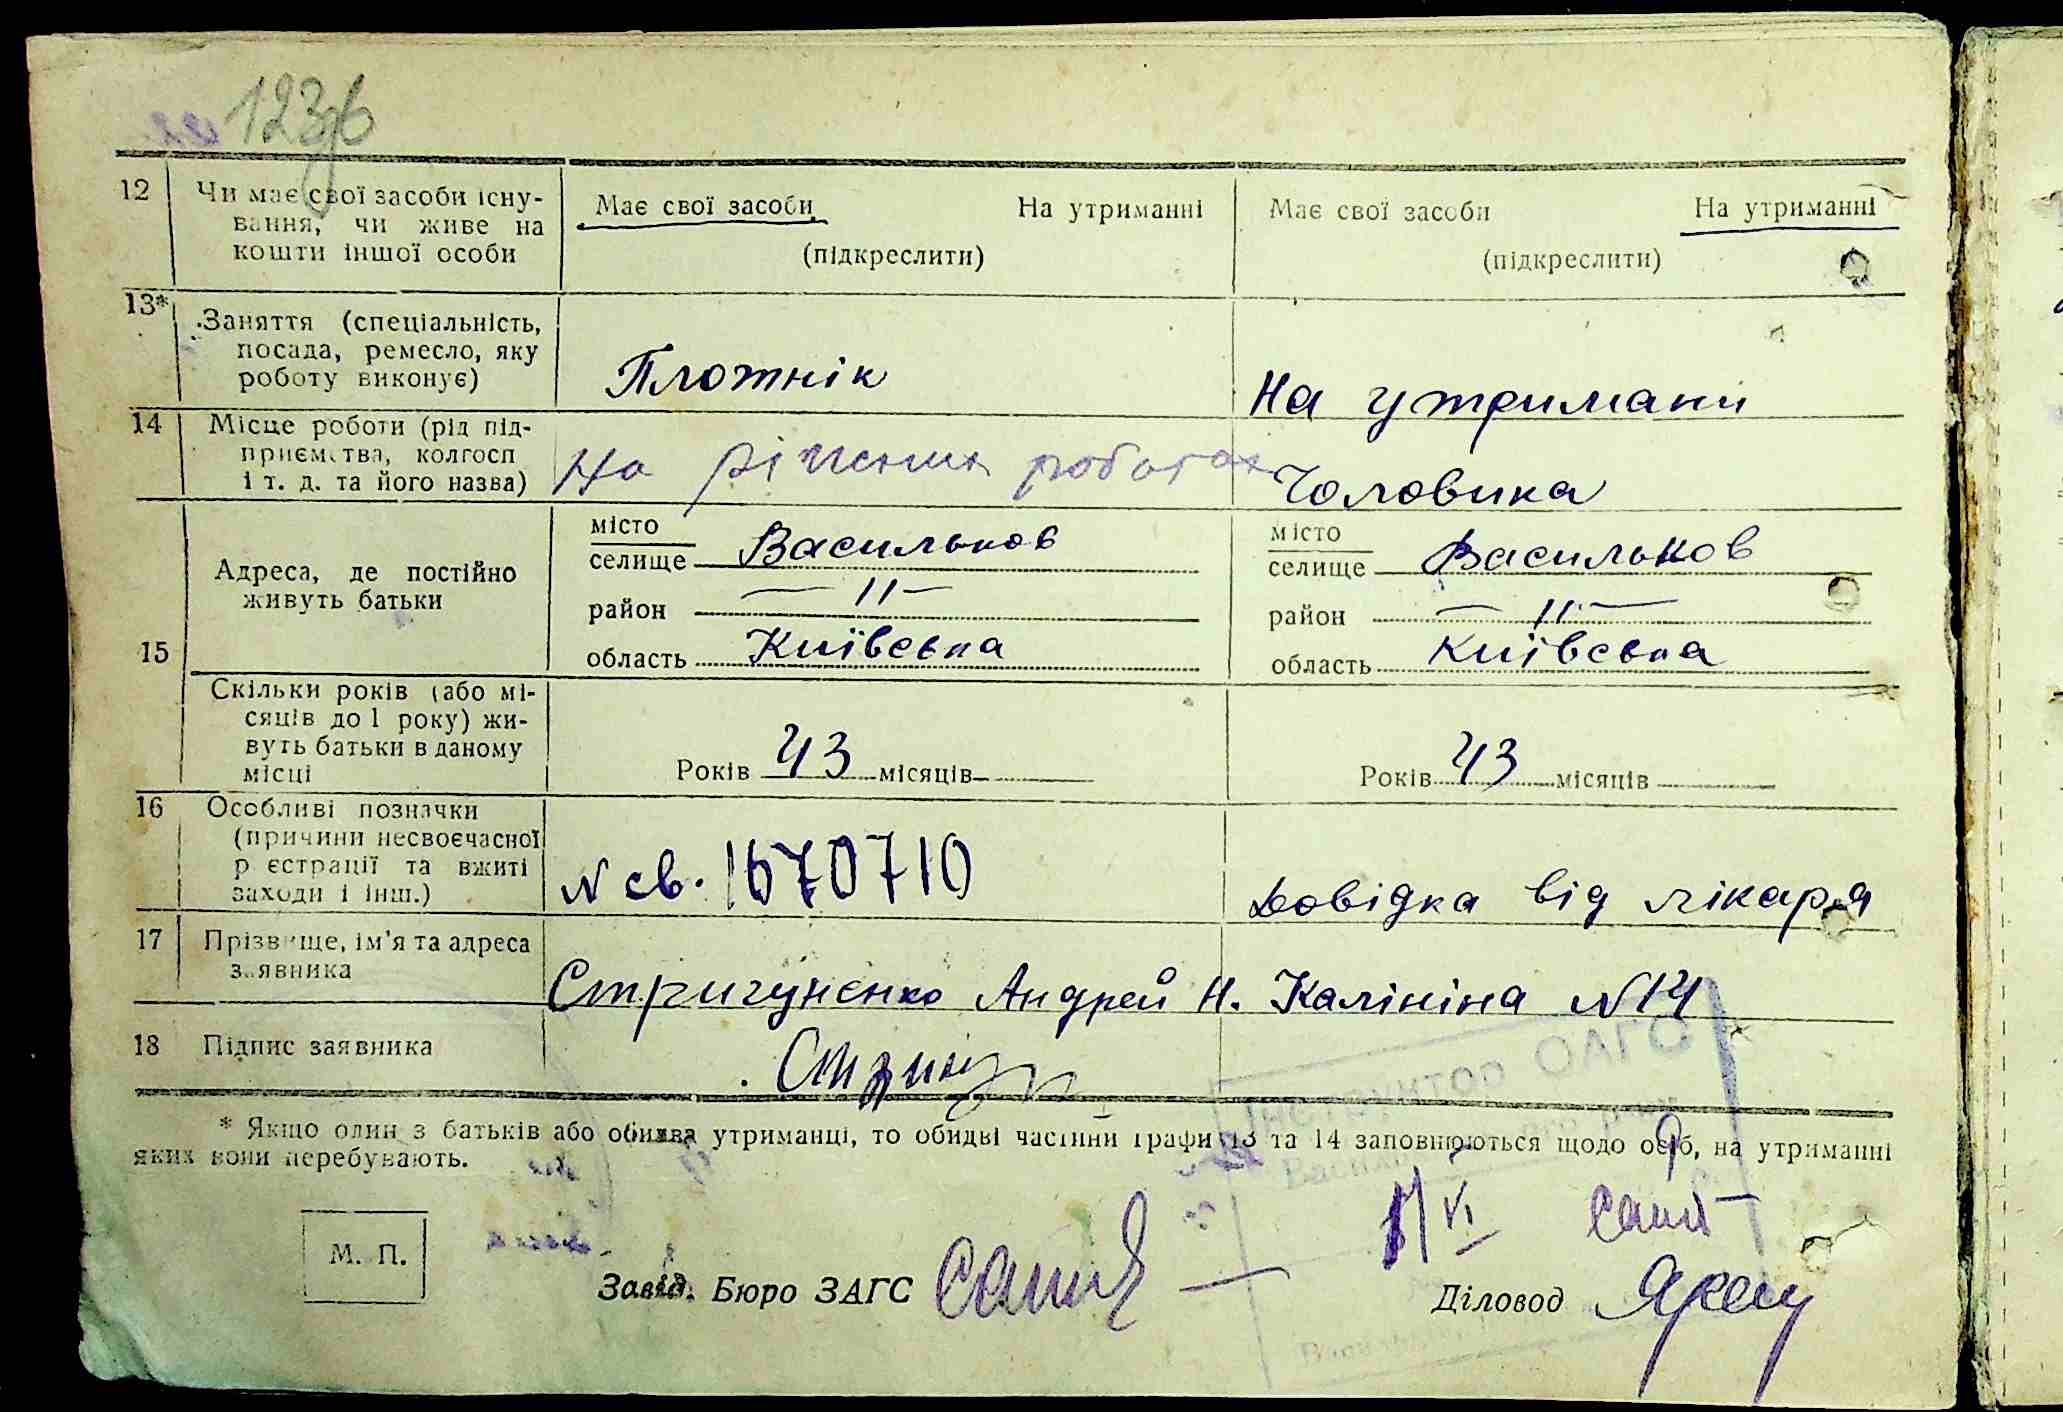 123зв
12 Чи має свої засоби існу-
вання, чи живе на
кошти іншої особи
Має свої засоби На утриманні
(підкреслити)
Має свої засоби На утриманні
(підкреслити)
13* Заняття (спеціальність,
посада, ремесло, яку
роботу виконує)
Плотнік
На утримани
14 Місце роботи (рід під-
приємства, колгосп
і т. д. та його назва)
На різних роботах
Чоловика
15 Адреса, де постійно
живуть батьки
місто
селище Васильков
район —11—
область Київська
місто
селище Васильков
район —11—
область Київська
Скільки років (або мі-
сяців до 1 року) жи-
вуть батьки в даному
місці
Років 43 місяців
Років 43 місяців
16 Особливі позначки
(причини несвоєчасної
реєстрації та вжиті
заходи і інш.)
N св. 1670710
Довідка від лікаря
17 Прізвище, ім'я та адреса
заявника
Стригуненко Андрей Н. Калініна N14
18 Підпис заявника
* Якщо один з батьків або обидва утриманці, то обидві частини графи 13 та 14 заповнюються щодо осіб, на утриманні
яких вони перебувають.
Інструктор ОАГС
М. П.
Завід. Бюро ЗАГС
Діловод